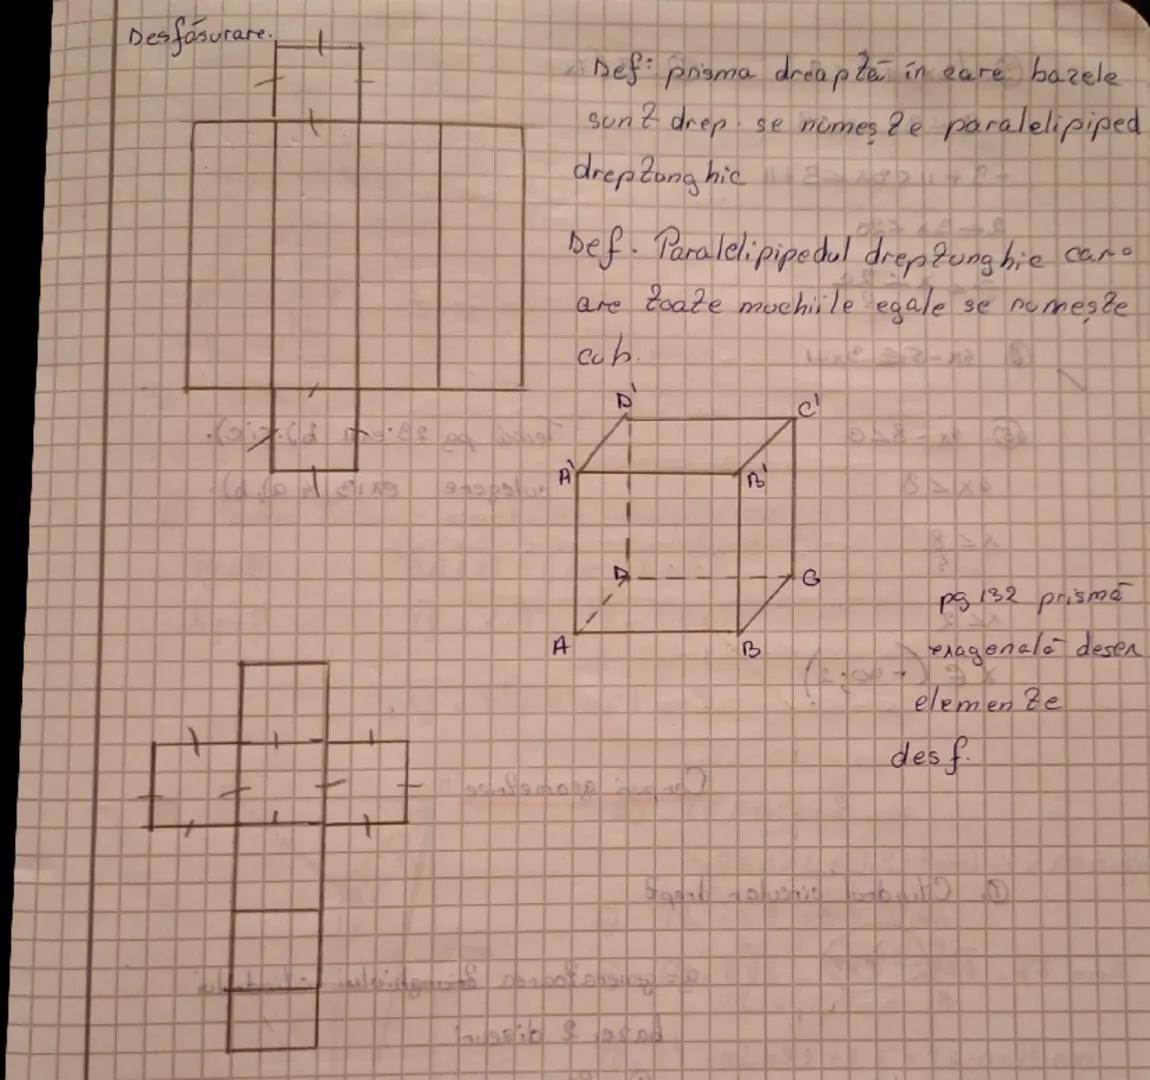 Desfăsurare.
Def: prisma dreaptă in care bazele
sunt drep. se numeşte paralelipiped
dreptunghic
Def. Paralelipipedul dreptunghic care
are toate muchiile egale se numeşte
cub.
D' C'
A' B'
D C
A B
pg 132 prismă
exagonală desen
elemente
desf.